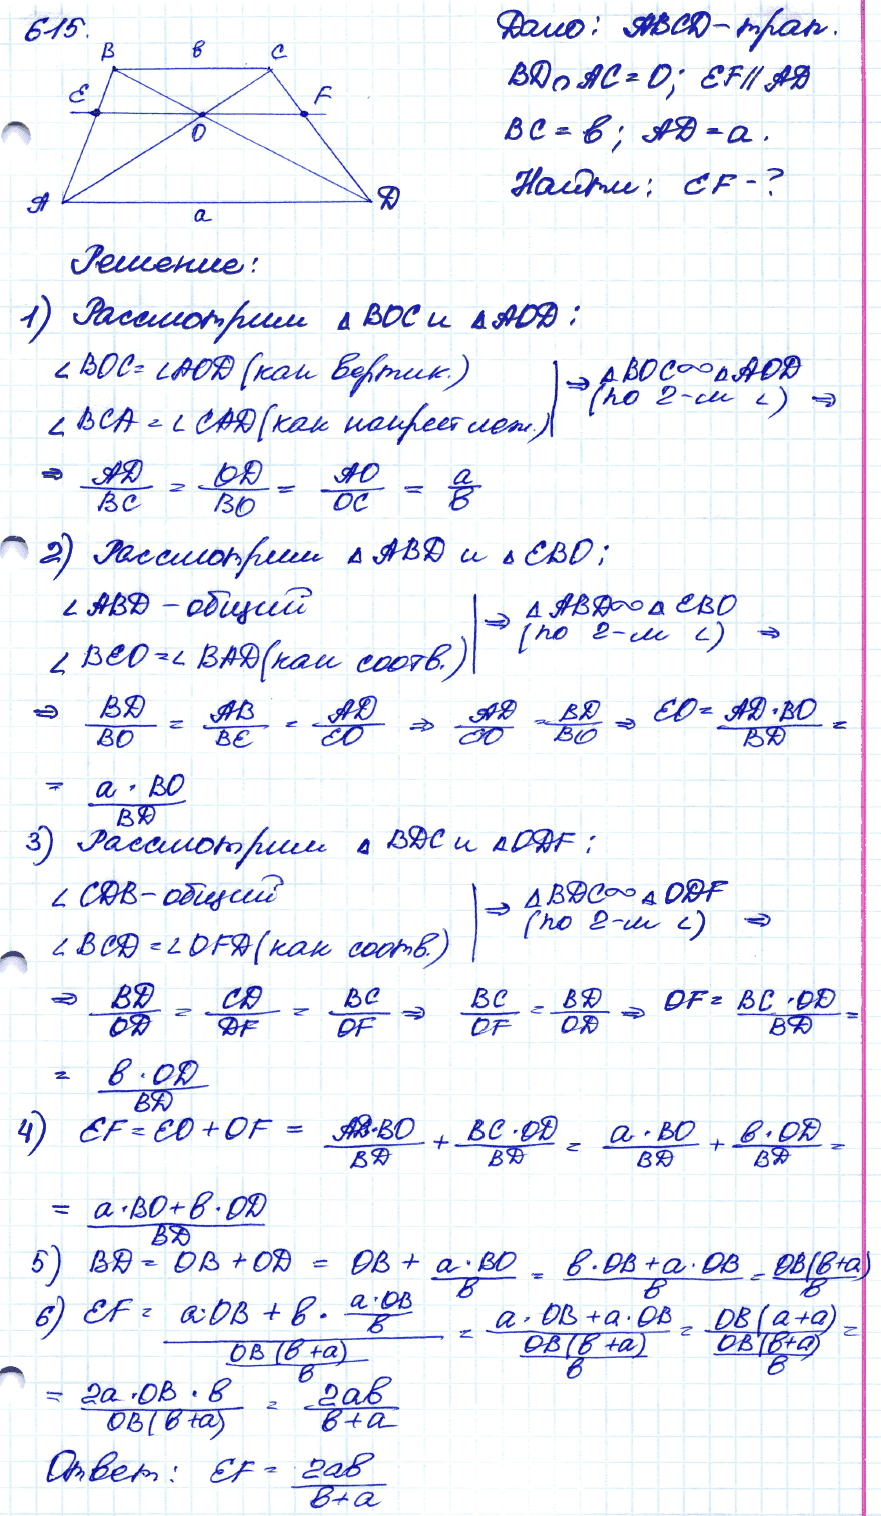 615.
B в C
E F
O
A а D
Дано: ABCD – трап.
BD∩AC = O; EF || AD
BC = в; AD = a.
Найти: EF - ?
Решение:
1) Рассмотрим △BOC и △AOD:
∠BOC = ∠AOD (как вертик.)
∠BCA = ∠CAD (как накрест леж.)
⇒ △BOC ∞ △AOD (по 2-м ∠) ⇒
⇒ AD/BC = OD/BO = AO/OC = a/в
2) Рассмотрим △ABD и △EBO;
∠ABD – общий
∠BEO = ∠BAD (как соотв.)
⇒ △ABD ∞ △EBO (по 2-м ∠) ⇒
⇒ BD/BO = AB/BE = AD/EO ⇒ AD/EO = BD/BO ⇒ EO = AD·BO/BD =
= a·BO/BD
3) Рассмотрим △BDC и △ODF;
∠CDB – общий
∠BCD = ∠OFD (как соотв.)
⇒ △BDC ∞ △ODF (по 2-м ∠) ⇒
⇒ BD/OD = CD/DF = BC/OF ⇒ BC/OF = BD/OD ⇒ OF = BC·OD/BD =
= в·OD/BD
4) EF = EO + OF = AD·BO/BD + BC·OD/BD = a·BO/BD + в·OD/BD =
= (a·BO + в·OD)/BD
5) BD = OB + OD = OB + a·BO/в = (в·OB + a·OB)/в = OB(в+a)/в
6) EF = (a·OB + в·(a·OB/в))/(OB(в+a)/в) = (a·OB + a·OB)/(OB(в+a)/в) = OB(a+a)/(OB(в+a)/в) =
= 2a·OB·в/(OB(в+a)) = 2aв/(в+a)
Ответ: EF = 2aв/(в+a)